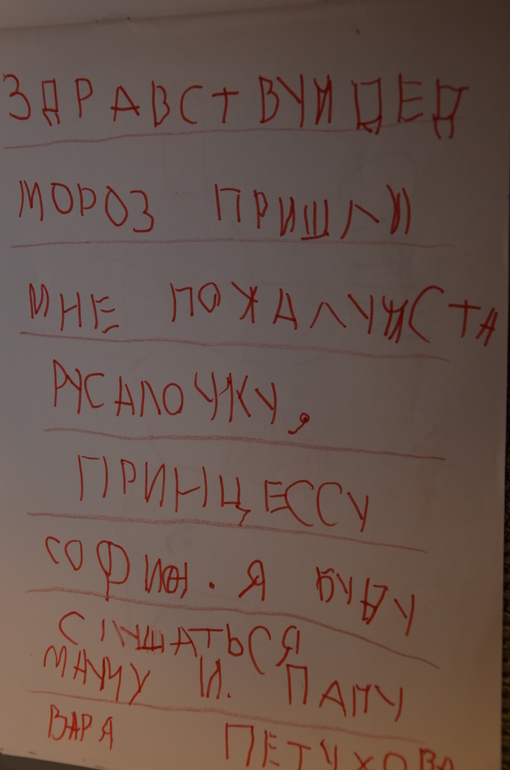 ЗДРАВСТВУЙ ДЕД
МОРОЗ ПРИШЛИ
МНЕ ПОЖАЛУЙСТА
РУСАЛОЧКУ,
ПРИНЦЕССУ
СОФИЮ. Я БУДУ
СЛУШАТЬСЯ
МАМУ И. ПАПУ
ВАРЯ ПЕТУХОВА